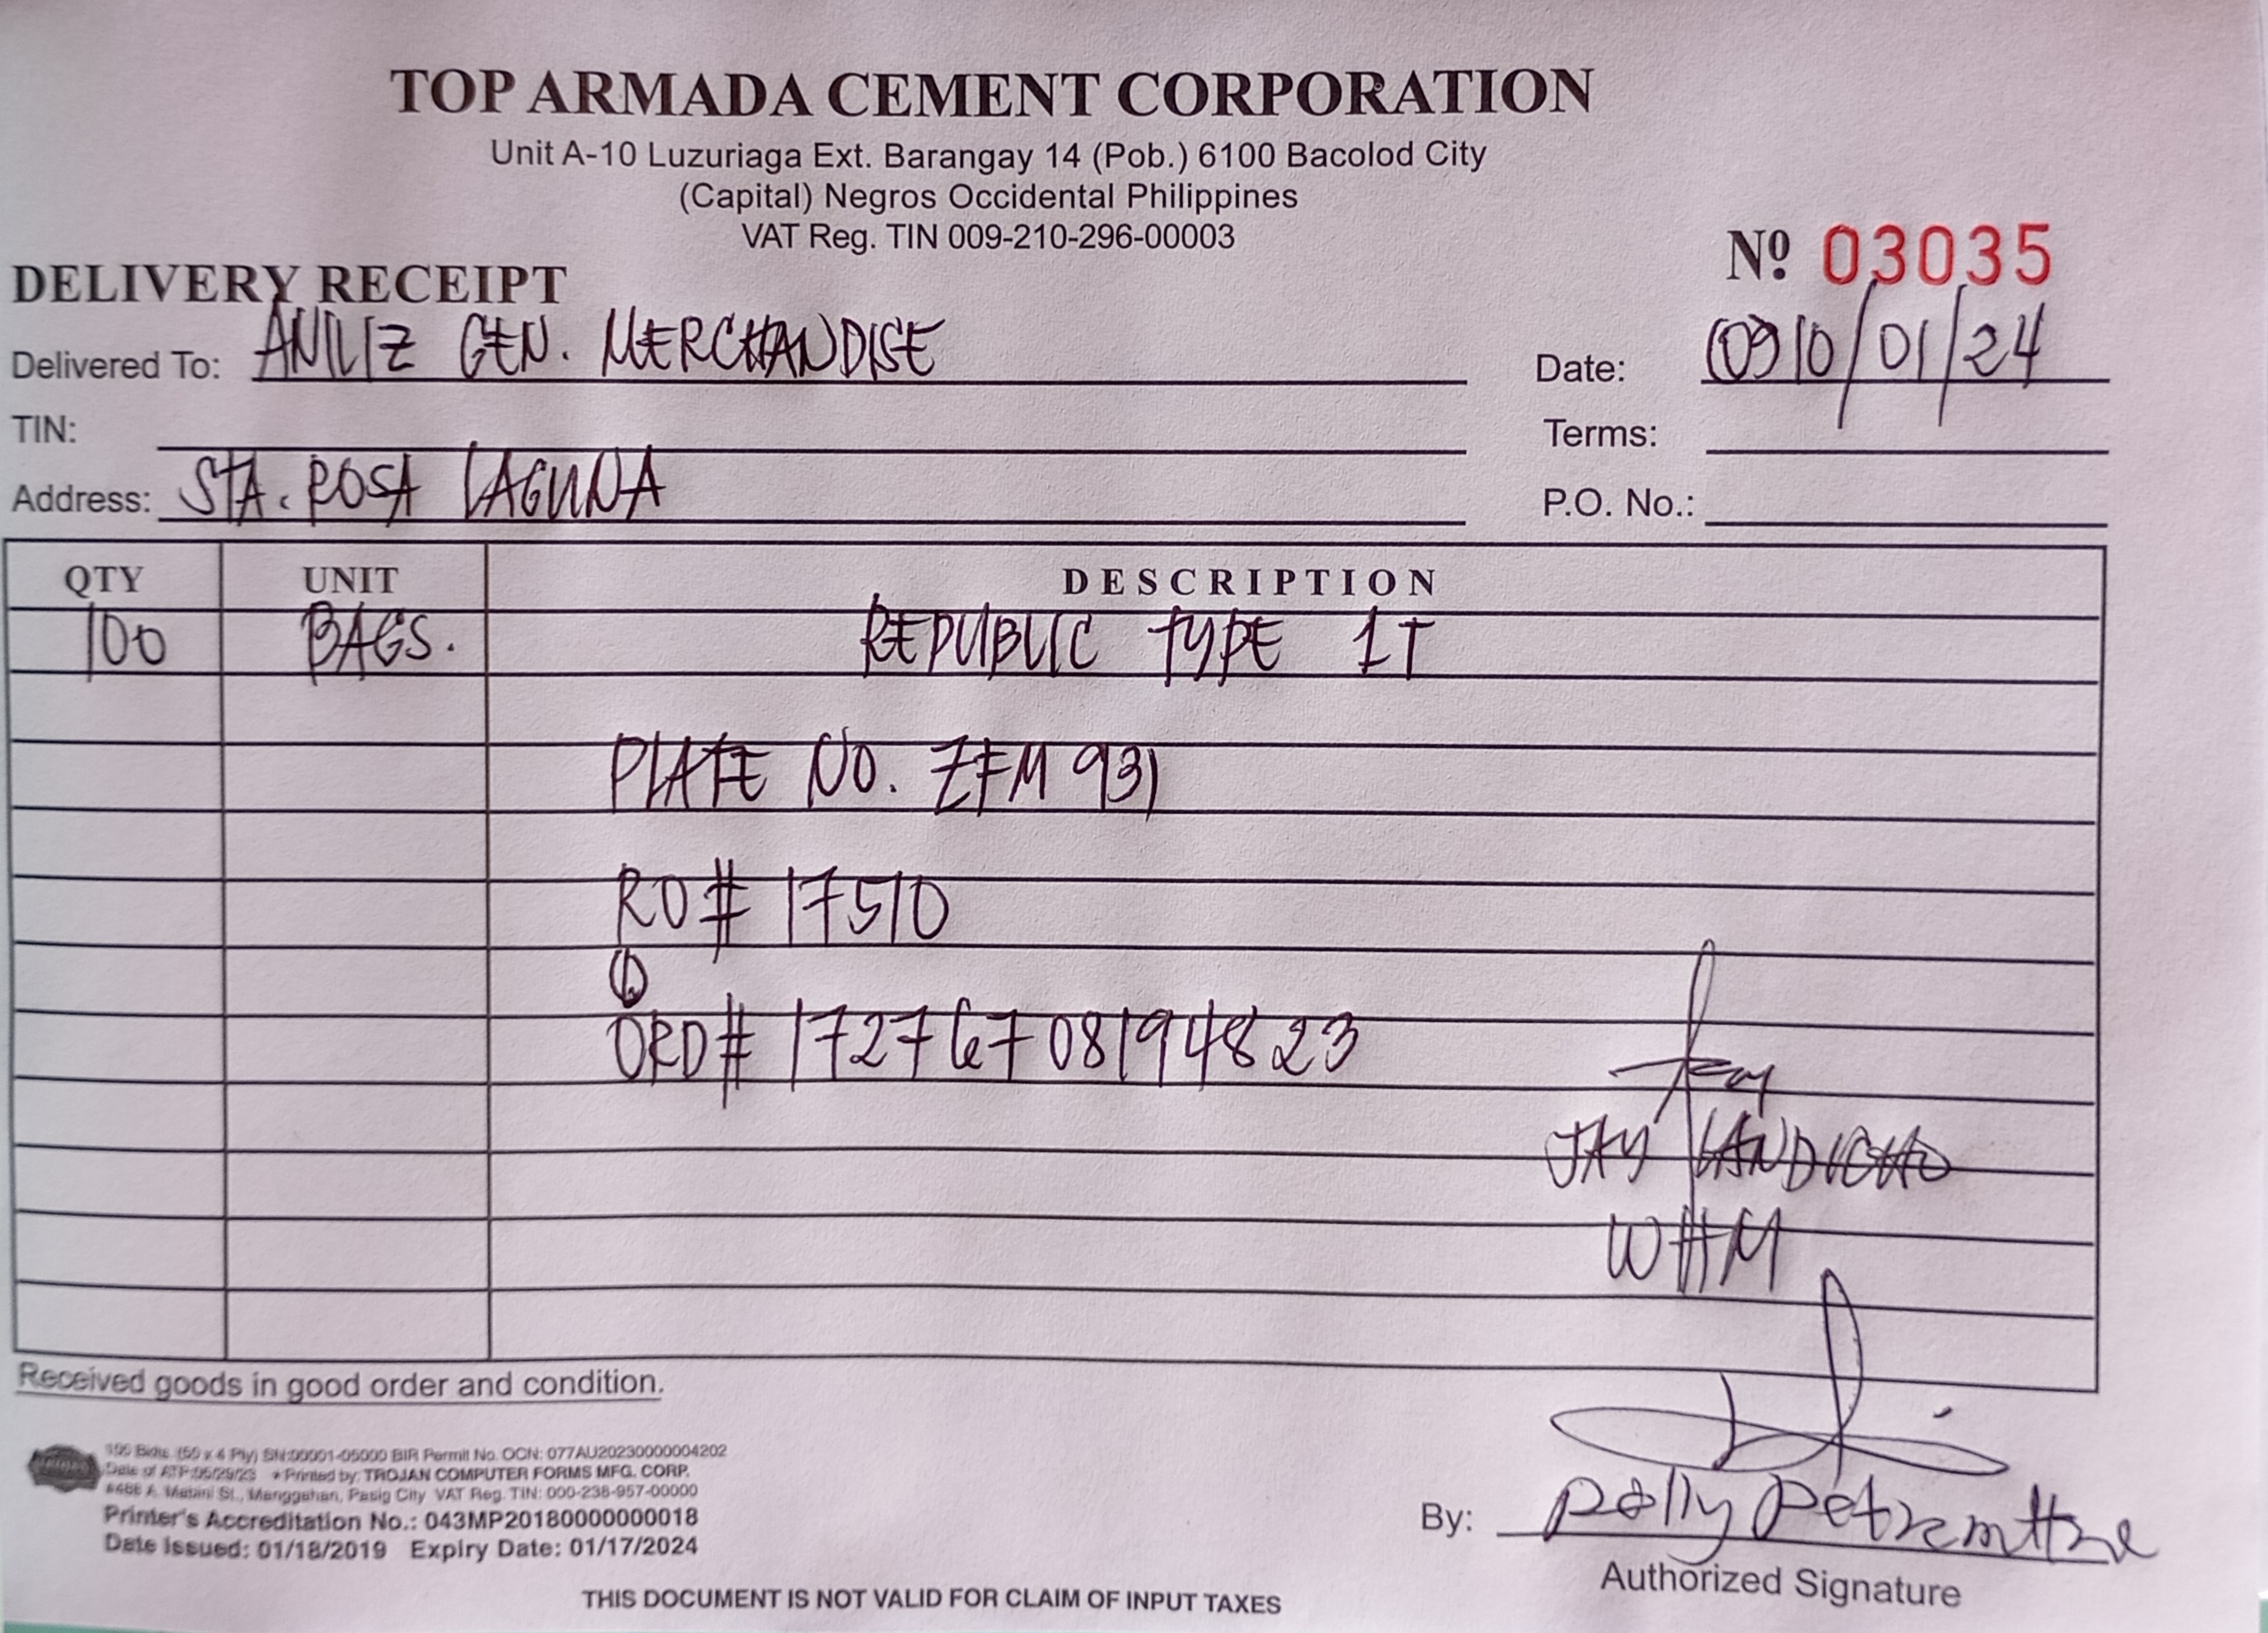 TOP ARMADA CEMENT CORPORATION
Unit A-10 Luzuriaga Ext. Barangay 14 (Pob.) 6100 Bacolod City
(Capital) Negros Occidental Philippines
VAT Reg. TIN 009-210-296-00003
Nº 03035
DELIVERY RECEIPT
Delivered To: ANILIZ GEN. MERCHANDISE
Date: 10/01/24
TIN:
Terms:
Address: STA. ROSA LAGUNA
P.O. No.:
QTY UNIT DESCRIPTION
100 BAGS. REPUBLIC TYPE 1T
PLATE NO. ZFM 931
RO# 17510
ORD# 17276708194823
JAY LANDICHO
WHM
Received goods in good order and condition.
100 Bklts. (50 x 4 Ply) SN:00001-05000 BIR Permit No. OCN: 077AU20230000004202
Date of ATP:05/29/23 • Printed by: TROJAN COMPUTER FORMS MFG. CORP.
#466 A. Mabini St., Manggahan, Pasig City VAT Reg. TIN: 000-238-957-00000
Printer's Accreditation No.: 043MP20180000000018
Date Issued: 01/18/2019 Expiry Date: 01/17/2024
By: Polly
Authorized Signature
THIS DOCUMENT IS NOT VALID FOR CLAIM OF INPUT TAXES